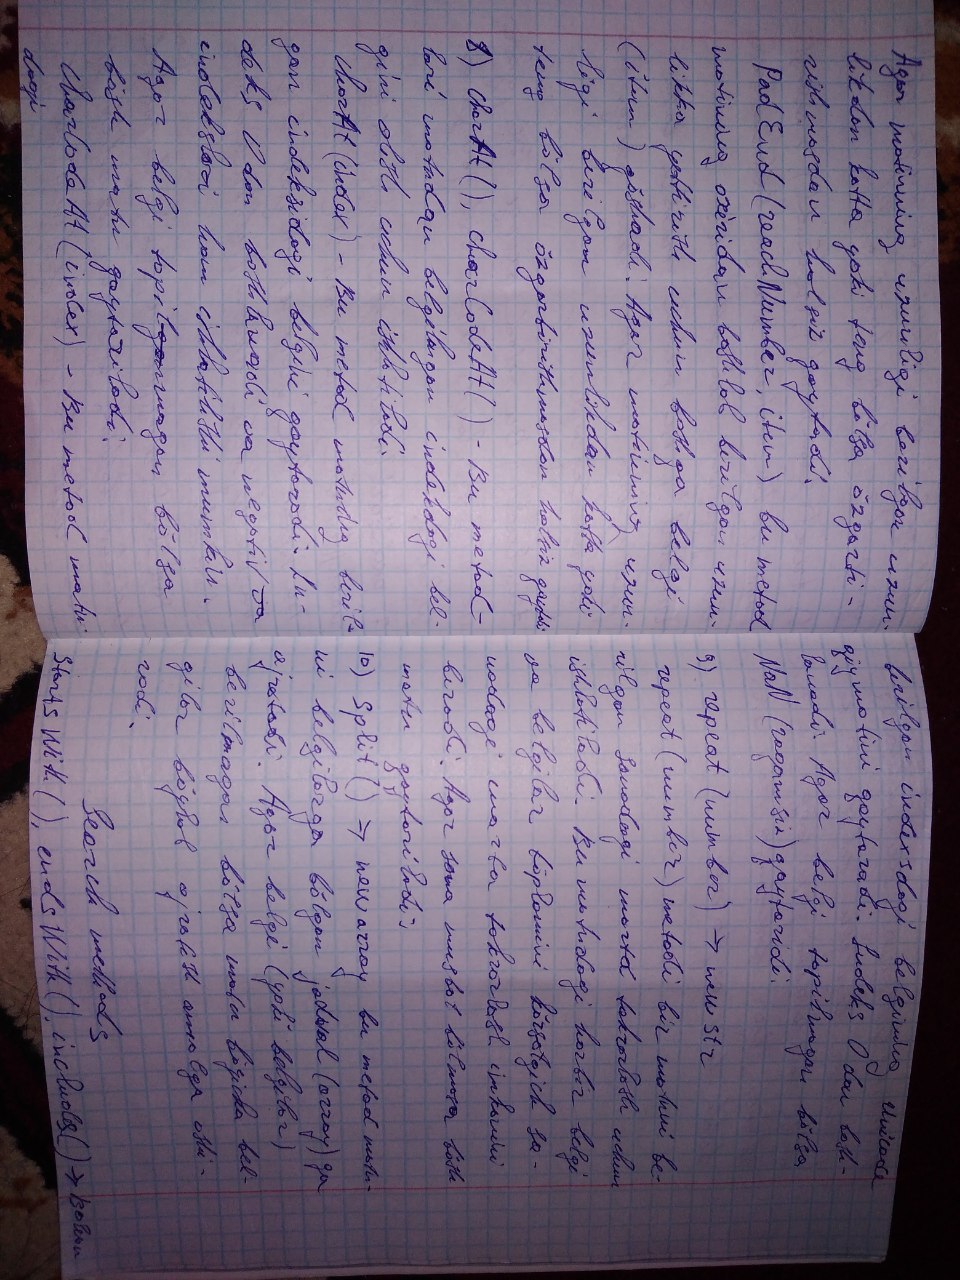 Agar matnning uzunligi berilgan uzun-
likdan katta yoki teng bo'lsa o'zgarti-
rilmasdan holsiz qaytadi.
PadEnd(reachNumber, item) bu metod
matnning oxiridan boshlab berilgan uzun-
likka yetkazish uchun boshqa belgi
(item) qo'shadi. Agar matnning uzun-
ligi berilgan uzunlikdan katta yoki
teng bo'lsa o'zgartirilmasdan
8) charAt(), charCodeAt() - Bu metod-
lari matndan belgilangan indeksdagi bel-
gini olish uchun ishlatiladi.
charAt(index) - Bu metod matndagi beril-
gan indeksidagi belgini qaytaradi. In-
deks 0 dan boshlanadi va negativ
indekslari ham ishlatilishi mumkin.
Agar belgi topilmagan bo'lsa
bo'sh matn qaytariladi.
CharCodeAt(index) - Bu metod matn-
dagi
berilgan indeksdagi belgining unicode
qiymatini qaytaradi. Indeks 0 dan bosh-
lanadi. Agar belgi topilmagan bo'lsa
NaN (raqamsiz) qaytaradi.
9) repeat(number) → new str
repeat(number) metodi bir matnni be-
rilgan sondagi marta takrorlash uchun
ishlatiladi. Bu matndagi harbir belgi
va belgilar to'plamini ko'rsatgich so-
nidagi marta takrorlash imkonini
beradi. Agar sona musbat bo'lmasa bo'sh
matn qaytariladi.
10) Split() → new array bu metod matn-
ni belgilarga bo'lgan jadval (array) ga
ajratadi. Agar belgi (yoki belgilar)
berilmagan bo'lsa matn bo'yicha bel-
gilar bo'ylab ajratish amalga oshi-
radi.
Search methods
startsWith(), endsWith(), includes() → boolean